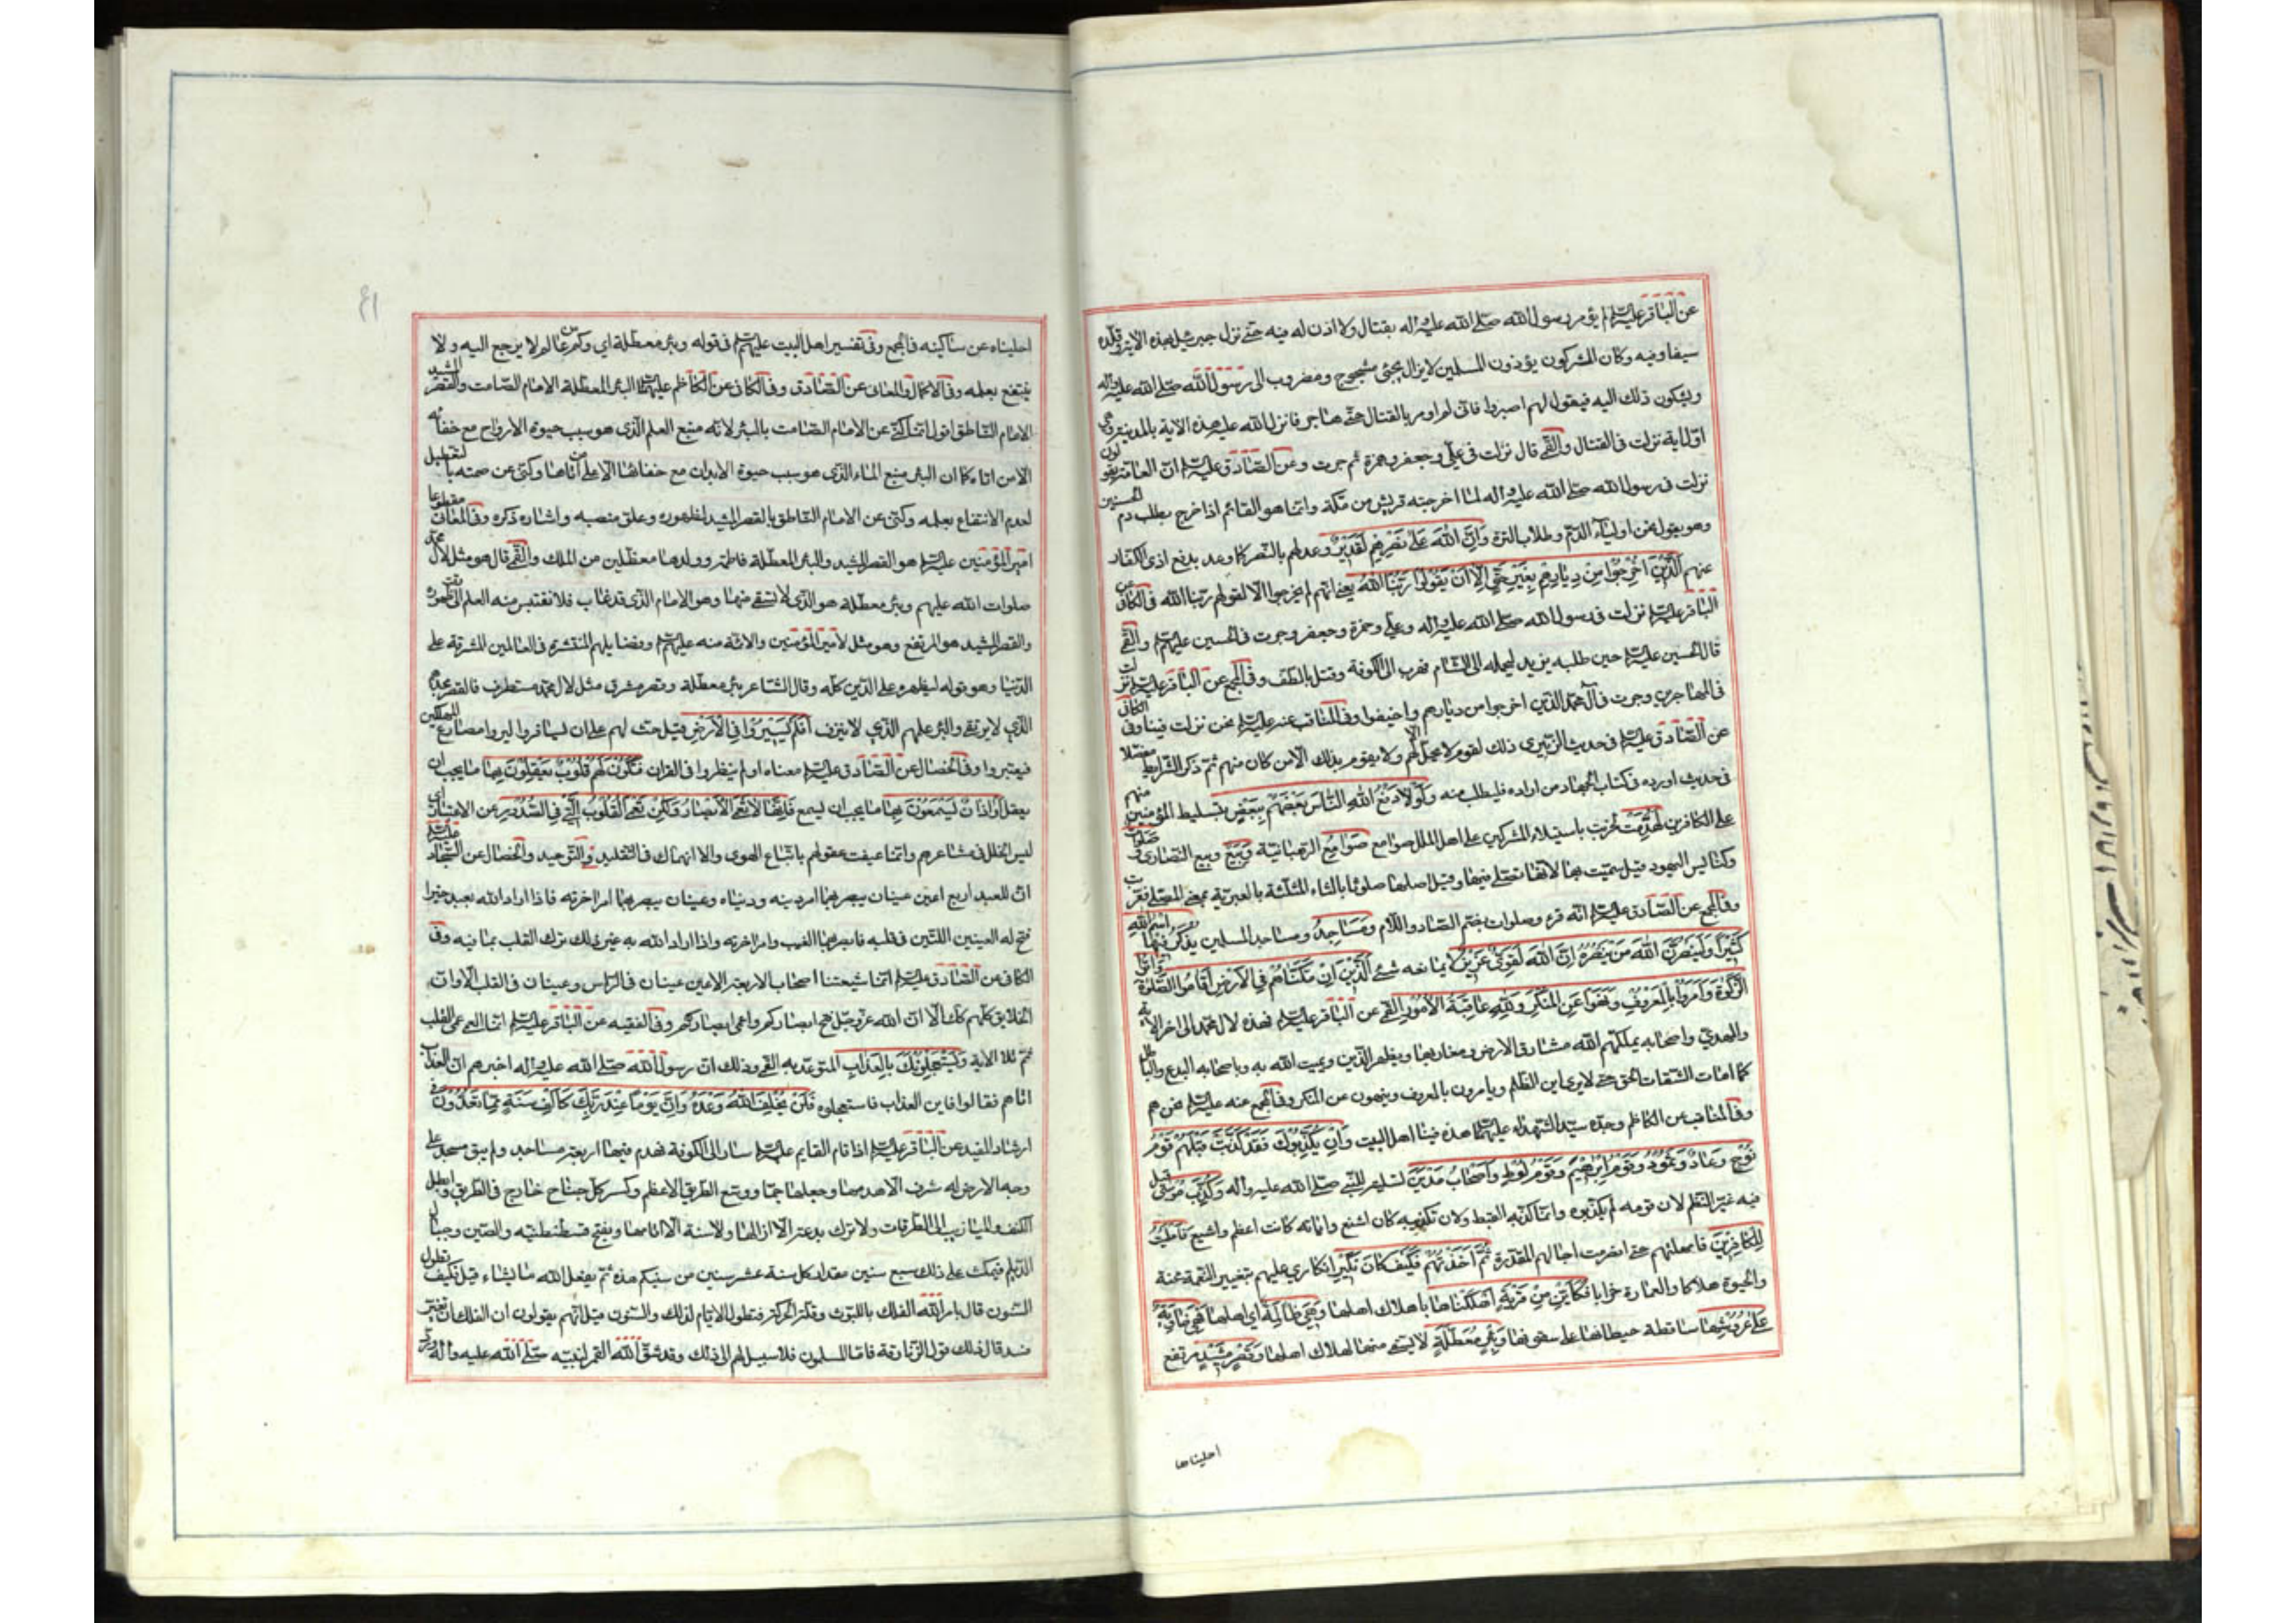 عن الباقر عليه السلم لم يؤمر رسول الله صلى الله عليه واله بقتال ولا اذن له فيه حتى نزل جبرئيل بهذه الاية وقلده
سيفا وفيه وكان المشركون يؤذون المسلمين لا يزال يجئ مشجوج ومضروب الى رسول الله صلى الله عليه واله
ويشكون ذلك اليه فيقول لهم اصبروا فانى لم اومر بالقتال حتى هاجر فانزل الله عليه هذه الاية بالمدينة وهى
اول اية نزلت فى القتال والقمى قال نزلت فى على وجعفر وحمزة ثم جرت وعن الصادق عليه السلم ان العامة يقولون
نزلت فى رسول الله صلى الله عليه واله لما اخرجته قريش من مكة وانما هو القائم اذا خرج يطلب بدم الحسين
وهو يقول نحن اولياء الدم وطلاب الترة وَاِنَّ اللهَ عَلى نَصْرِهِمْ لَقَديرٌ وعد لهم بالنصر كما وعد بدفع اذى الكفار
عنهم اَلَّذينَ اُخْرِجُوا مِنْ دِيارِهِمْ بِغَيْرِ حَقٍّ اِلّا اَنْ يَقُولُوا رَبُّنَا اللهُ يعنى انهم لم يخرجوا الا لقولهم ربنا الله فى الكافى عن
الباقر عليه السلم نزلت فى رسول الله صلى الله عليه واله وعلى وحمزة وجعفر وجرت فى الحسين عليهم السلم والقمى
قال الحسين عليه السلم حين طلبه يزيد ليحمله الى الشام فهرب الى الكوفة وقتل بالطف وفى المجمع عن الباقر عليه السلم نزلت
فى المهاجرين وجرت فى آل محمد الذين اخرجوا من ديارهم واخيفوا وفى المناقب عنه عليه السلم نحن نزلت فينا وفى الكافى
عن الصادق عليه السلم فى حديث الزبيرى ذلك لقوم لا يحل الا لهم ولا يقوم بذلك الا من كان منهم ثم ذكر الشرايط مفصلا
فى حديث اورده فى كتاب الجهاد من اراده فليطلب منه وَلَوْلا دَفْعُ اللهِ النّاسَ بَعْضَهُمْ بِبَعْضٍ بتسليط المؤمنين منهم
على الكافرين لَهُدِّمَتْ لخربت باستيلاء المشركين على اهل الملل صوامع صَوامِعُ الرهبانية وَبِيَعٌ وبيع النصارى وَصَلَواتٌ
وكنايس اليهود قيل سميت بها لانها تصلى فيها وقيل اصلها صلوثا بالثاء المثلثة بالعبرية بمعنى المصلى فعربت
وفى المجمع عن الصادق عليه السلم انه قرء وصلوات بضم الصاد واللام وَمَساجِدُ ومساجد المسلمين يُذْكَرُ فيهَا اسْمُ اللهِ
كَثيراً وَلَيَنْصُرَنَّ اللهُ مَنْ يَنْصُرُهُ اِنَّ اللهَ لَقَوِىٌّ عَزيزٌ لا يمانعه شئ اَلَّذينَ اِنْ مَكَّنّاهُمْ فِى الْاَرْضِ اَقامُوا الصَّلوةَ وَاتَوُا
الزَّكوةَ وَاَمَرُوا بِالْمَعْرُوفِ وَنَهَوْا عَنِ الْمُنْكَرِ وَلِلّهِ عاقِبَةُ الْاُمُورِ القمى عن الباقر عليه السلم فهذه لال محمد الى اخر الاية
والمهدى واصحابه يملكهم الله مشارق الارض ومغاربها ويظهر الدين ويميت الله به وباصحابه البدع والباطل
كما امات الشقاة الحق حتى لا يرى اين الظلم ويامرون بالمعروف وينهون عن المنكر وفى المجمع عنه عليه السلم نحن هم
وفى المناقب عن الكاظم وجده سيد الشهداء عليهما السلم هذه فينا اهل البيت وَاِنْ يُكَذِّبُوكَ فَقَدْ كَذَّبَتْ قَبْلَهُمْ قَوْمُ
نُوحٍ وَعادٌ وَثَمُودُ وَقَوْمُ اِبْراهيمَ وَقَوْمُ لُوطٍ وَاَصْحابُ مَدْيَنَ تسلية للنبى صلى الله عليه واله وَكُذِّبَ مُوسى قيل
فيه غير النظم لان قومه لم يكذبوه وانما كذبه القبط ولان تكذيبه كان اشنع واياته كانت اعظم واشيع فَاَمْلَيْتُ
لِلْكافِرينَ فامهلتهم حتى انصرمت اجالهم المقدرة ثُمَّ اَخَذْتُهُمْ فَكَيْفَ كانَ نَكيرِ انكارى عليهم بتغيير النعمة محنة
والحيوة هلاكا والعمارة خرابا فَكَاَيِّنْ مِنْ قَرْيَةٍ اَهْلَكْناها باهلاك اهلها وَهِىَ ظالِمَةٌ اى اهلها فَهِىَ خاوِيَةٌ
عَلى عُرُوشِها ساقطة حيطانها على سقوفها وَبِئْرٍ مُعَطَّلَةٍ لا يستقى منها لهلاك اهلها وَقَصْرٍ مَشيدٍ مرتفع
احليناها
احليناه عن ساكنيه فى المجمع وفى تفسير اهل البيت عليهم السلم فى قوله وبئر معطلة اى وكم من عالم لا يرجع اليه ولا
ينتفع بعلمه وفى الاكمال والمعانى عن الصادق وفى الكافى عن الكاظم عليهما السلم البئر المعطلة الامام الصامت والقصر المشيد
الامام الناطق اقول انما كنى عن الامام الصامت بالبئر لانه منبع العلم الذى هو سبب حيوة الارواح مع خفائه
الا من اتاه كما ان البئر منبع الماء الذى هو سبب حيوة الابدان مع خفائها الا على من اتاها وكنى عن صمته بالتعطيل
لعدم الانتفاع بعلمه وكنى عن الامام الناطق بالقصر المشيد لظهوره وعلو منصبه واشارة ذكره وفى المعانى مقطوعا
امير المؤمنين عليه السلم هو القصر المشيد والبئر المعطلة فاطمة وولدها معطلين من الملك والقمى قال هو مثل لال محمد
صلوات الله عليهم وبئر معطلة هو الذى لا تستقى منها وهو الامام الذى قد غاب فلا نقتبس منه العلم الى وقت ظهوره
والقصر المشيد هو المرتفع وهو مثل لامير المؤمنين والائمة منه عليهم السلم وفضايلهم المنتشرة فى العالمين المشرفة على
الدنيا وهو قوله ليظهره على الدين كله وقال الشاعر بئر معطلة وقصر مشرف مثل لال محمد مستطرف فالقصر مجدهم
الذى لا يرتقى والبئر علمهم الذى لا ينزف اَفَلَمْ يَسيرُوا فِى الْاَرْضِ قيل حث لهم على ان ليسافروا ليروا مصارع المهلكين
فيعتبروا وفى الخصال عن الصادق عليه السلم معناه اولم ينظروا فى القران فَتَكُونَ لَهُمْ قُلُوبٌ يَعْقِلُونَ بِها ما يجب ان
يعقل اَوْ اذانٌ يَسْمَعُونَ بِها ما يجب ان ليسمع فَاِنَّها لا تَعْمَى الْاَبْصارُ وَلكِنْ تَعْمَى الْقُلُوبُ الَّتى فِى الصُّدُورِ عن الاعتبار اى
ليس الخلل فى مشاعرهم وانما عيفت عقولهم باتباع الهوى والانهماك فى التقليد وفى التوحيد والخصال عن السجاد عليه السلم
ان للعبد اربع اعين عينان يبصر بهما امر دينه ودنياه وعينان يبصر بهما امر اخرته فاذا اراد الله بعبد خيرا
فتح له العينين اللتين فى قلبه فابصر بهما الغيب وامر اخرته واذا اراد الله به غير ذلك ترك القلب بما فيه وفى
الكافى عن الصادق عليه السلم انما شيعتنا اصحاب الاربعة الاعين عينان فى الراس وعينان فى القلب الا وان
الخلايق كلهم كذلك الا ان الله عز وجل فتح ابصاركم واعمى ابصارهم وفى الفقيه عن الباقر عليه السلم انما العمى عمى القلب
ثم تلا الاية وَيَسْتَعْجِلُونَكَ بِالْعَذابِ المتوعد به القمى وذلك ان رسول الله صلى الله عليه واله اخبرهم ان العذاب
اتاهم فقالوا فاين العذاب فاستعجلوه فَلَنْ يُخْلِفَ اللهُ وَعْدَهُ وَاِنَّ يَوْماً عِنْدَ رَبِّكَ كَاَلْفِ سَنَةٍ مِمّا تَعُدُّونَ فى
ارشاد المفيد عن الباقر عليه السلم اذا قام القايم عليه السلم سار الى الكوفة فهدم فيها اربعة مساجد ولم يبق مسجد على
وجه الارض له شرف الا هدمها وجعلها جما ووسع الطريق الاعظم وكسر كل جناح خارج فى الطريق وابطل
الكنف والميازيب الى الطرقات ولا ترك بدعة الا ازالها ولا سنة الا اقامها ويفتح قسطنطنيه والصين وجبال
الديلم فيمكث على ذلك سبع سنين مقدار كل سنة عشر سنين من سنيكم هذه ثم يفعل الله ما يشاء قيل فكيف تطول
السنون قال يامر الله الفلك باللبوث وقلة الحركة فتطول الايام لذلك والسنون قيل انهم يقولون ان الفلك ان تغير
فسد قال ذلك قول الزنادقة فاما المسلمون فلا سبيل لهم الى ذلك وقد شق الله القمر لنبيه صلى الله عليه واله ورد